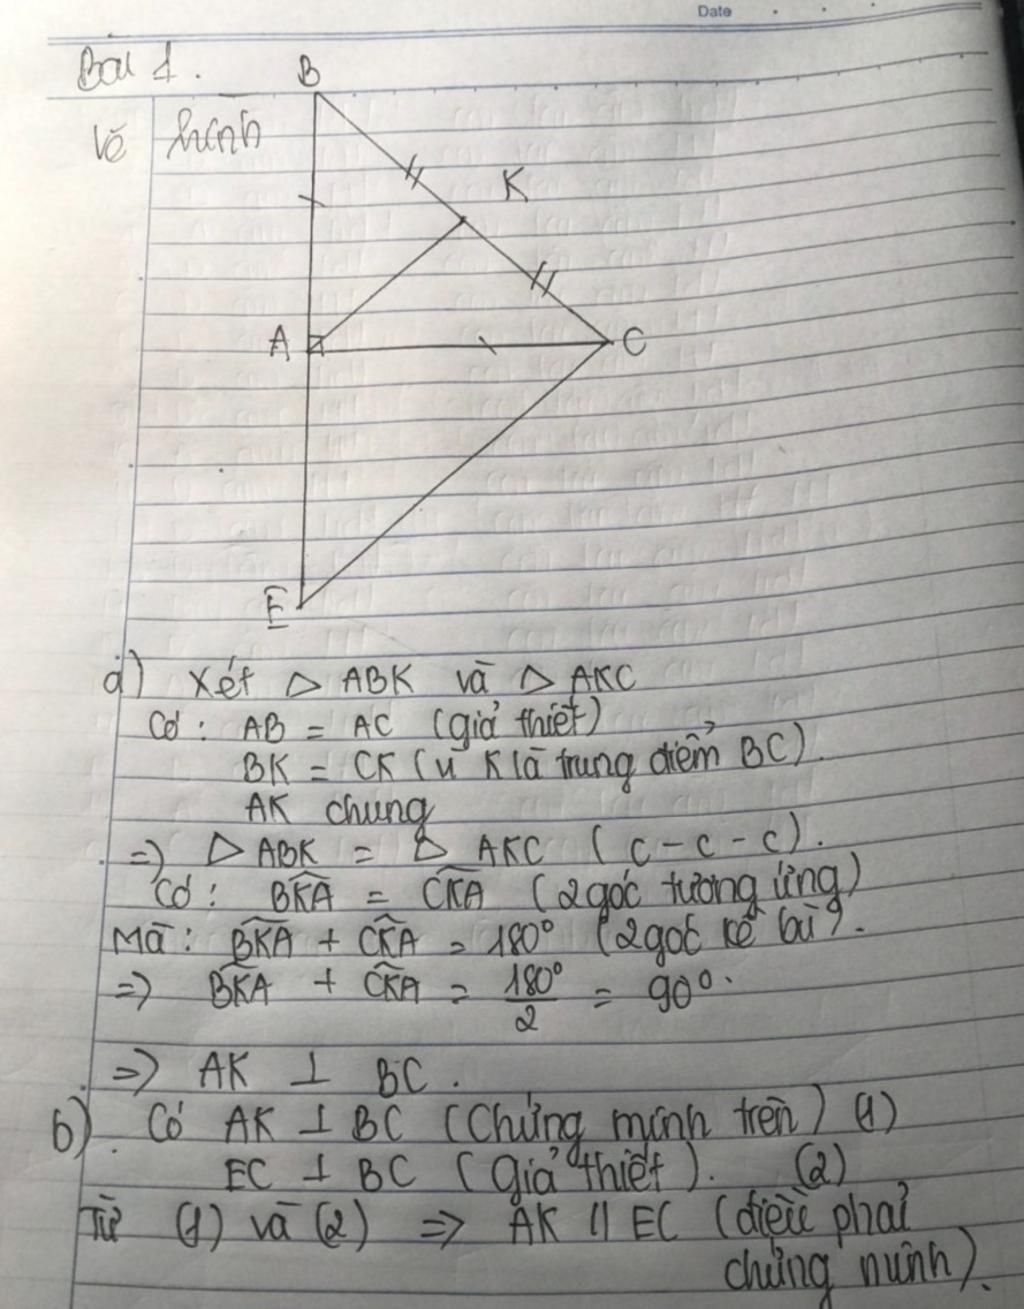 Date
Bài 1.
B
Vẽ hình
K
A
C
E
a) Xét △ ABK và △ AKC
Có : AB = AC (giả thiết)
BK = CK (vì K là trung điểm BC).
AK chung
=> △ ABK = △ AKC ( c - c - c ).
Có : B̂KA = ĈKA (2 góc tương ứng)
Mà : B̂KA + ĈKA = 180° (2 góc kề bù).
=> B̂KA + ĈKA = 180°/2 = 90°.
=> AK ⊥ BC .
b). Có AK ⊥ BC (Chứng minh trên) (1)
EC ⊥ BC (giả thiết). (2)
Từ (1) và (2) => AK // EC (điều phải
chứng minh).